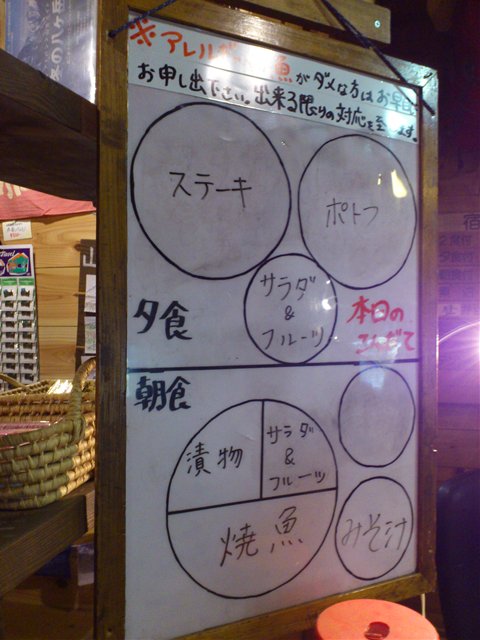 ※アレルギー
魚がダメな方はお早目に
お申し出下さい。出来る限りの対応を致します。
ステーキ
ポトフ
サラダ
&
フルーツ
夕食
本日の
こんだて
朝食
漬物
サラダ
&
フルーツ
焼魚
みそ汁